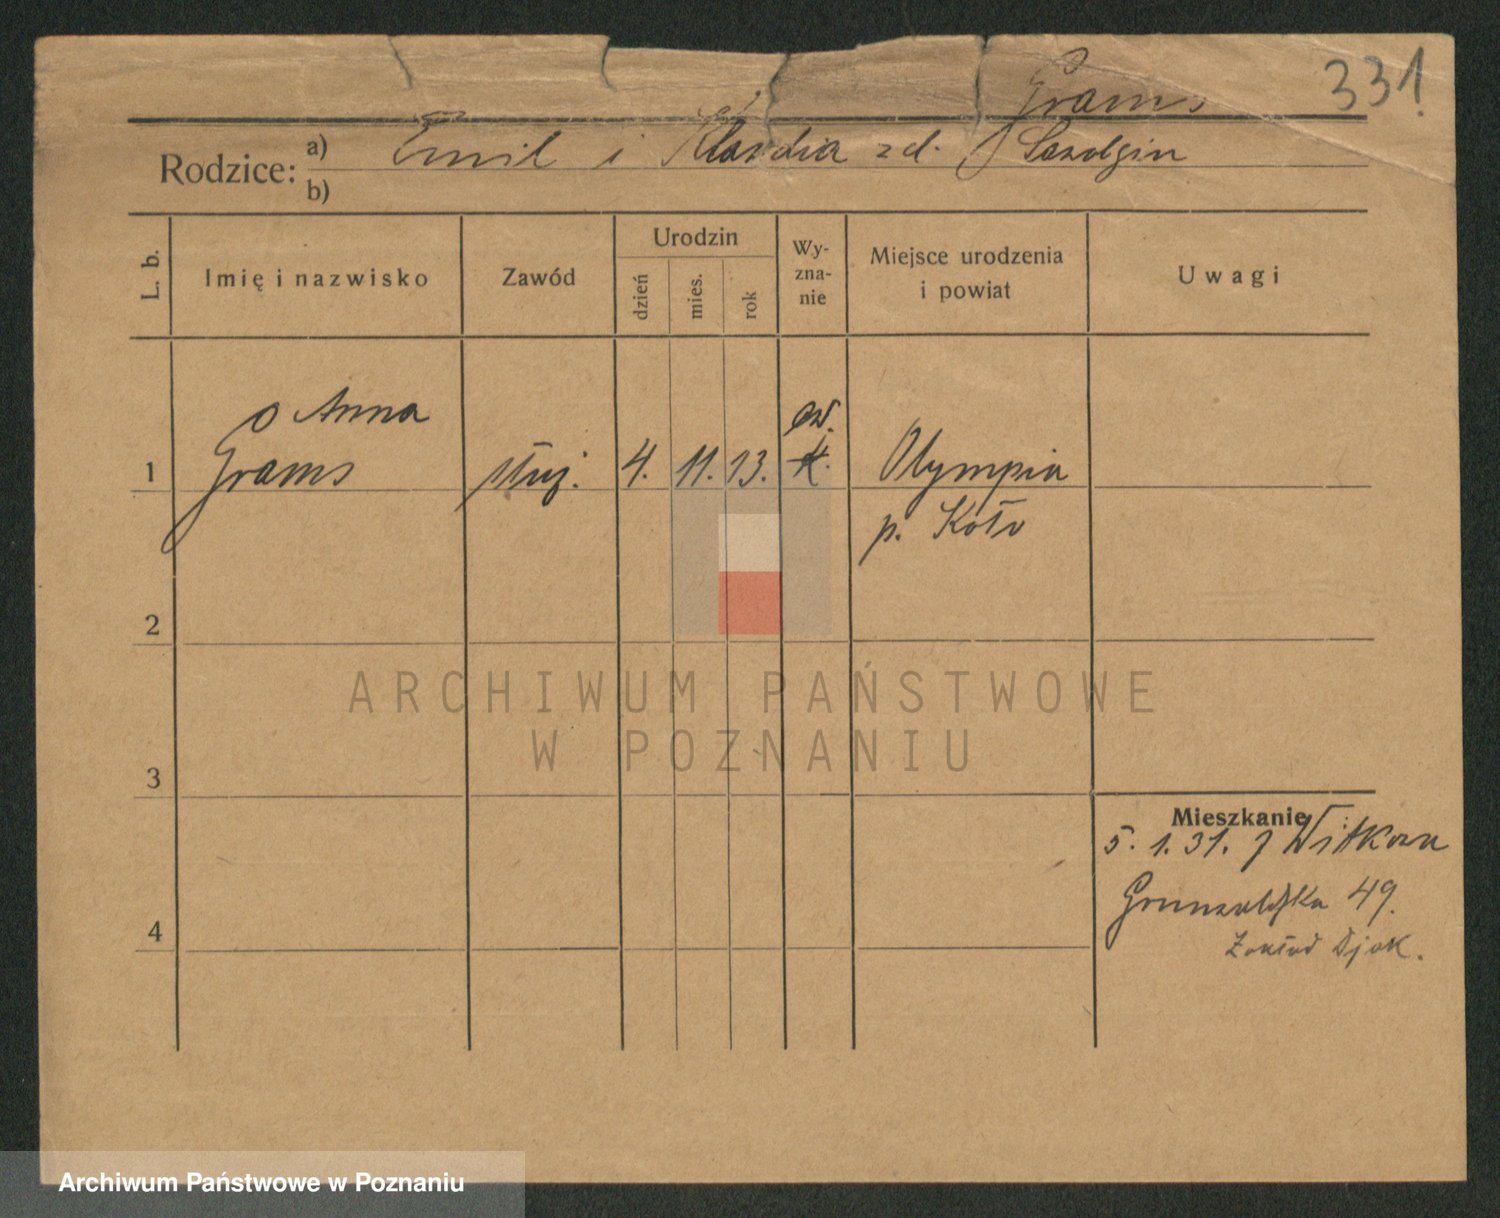 331
Grams
Rodzice: a) Emil i Klavdia zd.
b)
L. b.
Imię i nazwisko
Zawód
Urodzin
dzień
mies.
rok
Wy-
zna-
nie
Miejsce urodzenia
i powiat
Uwagi
o Anna
ew.
1 Grams służ. 4. 11. 13. k. Olympia
p. Koło
2
3
4
ARCHIWUM PAŃSTWOWE
W POZNANIU
Mieszkanie
5. 1. 31. z Witkowa
Grunwaldzka 49.
Zakład Djak.
Archiwum Państwowe w Poznaniu